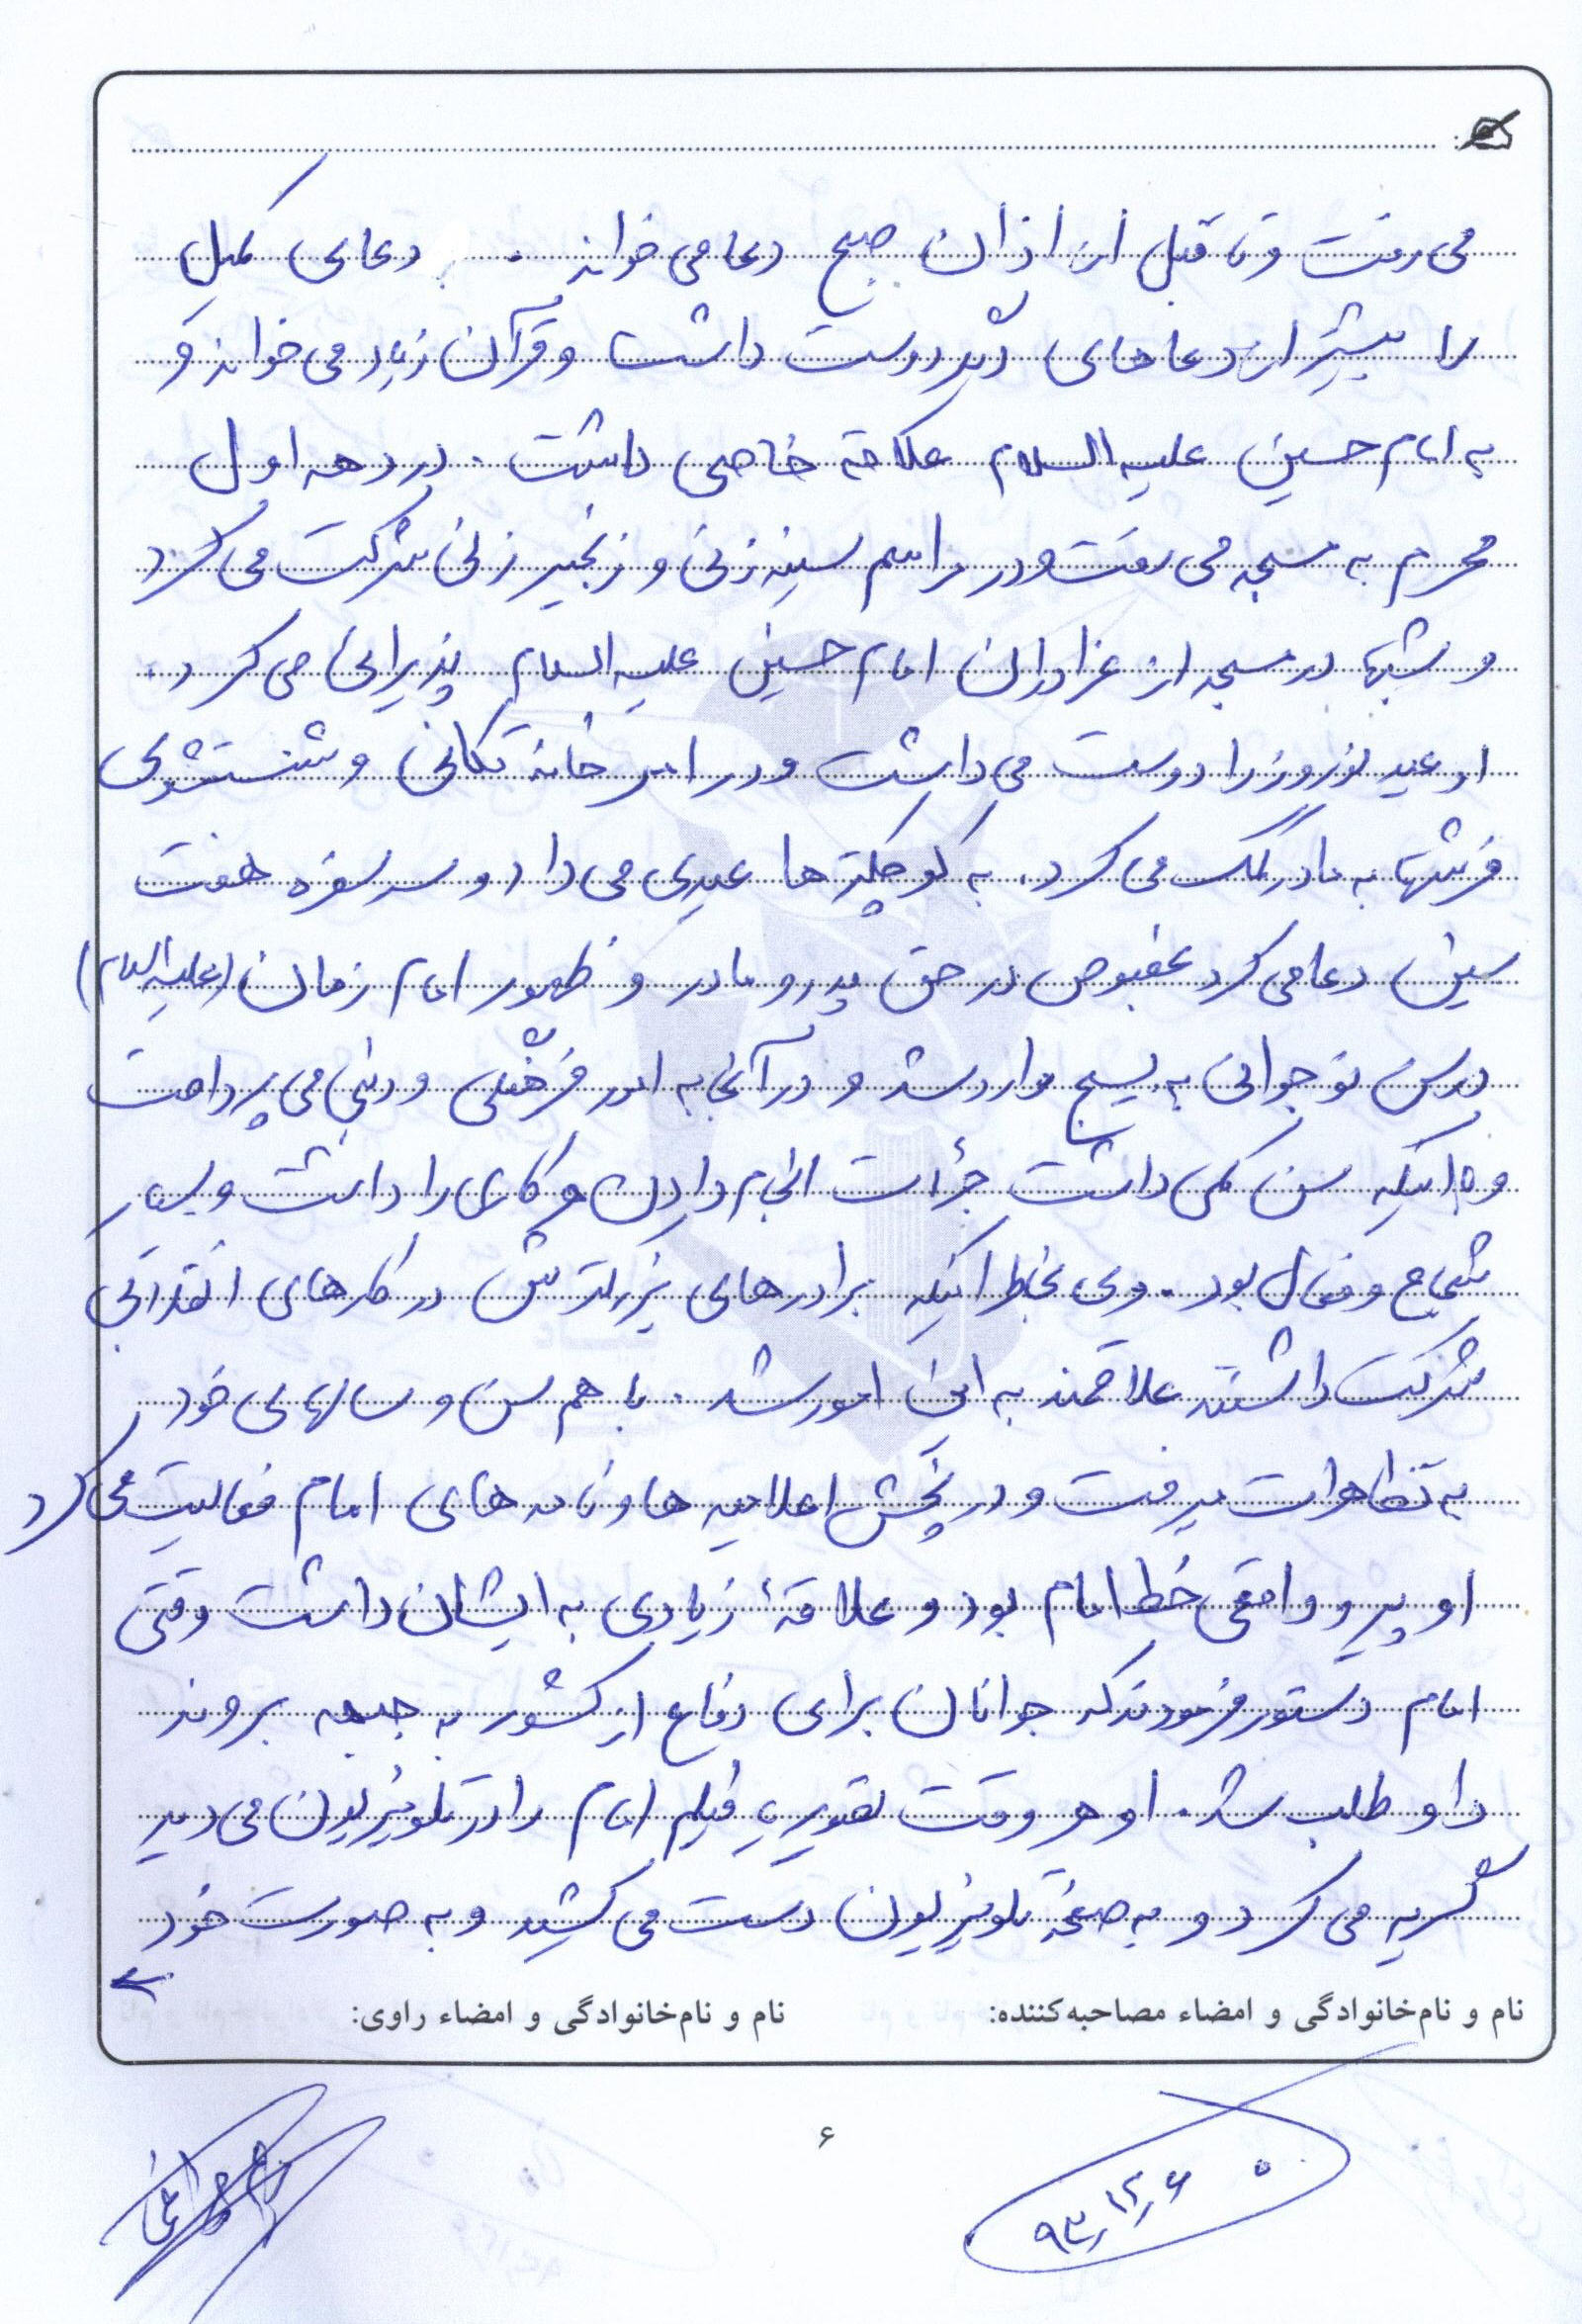 می رفت و تا قبل از اذان صبح دعا می خواند . دعای کمیل
را بیشتر از دعاهای دیگر دوست داشت و قرآن زیاد می خواند و
به امام حسین علیه السلام علاقه خاصی داشت . در دهه اول
محرم به مسجد می رفت و در مراسم سینه زنی و زنجیر زنی شرکت می کرد
و شبها در مسجد از عزاداران امام حسین علیه السلام پذیرایی می کرد .
او عید نوروز را دوست می داشت و در امر خانه تکانی و شستشوی
فرشها به مادر کمک می کرد . به کوچکترها عیدی می داد و سر سفره هفت
سین دعا می کرد بخصوص در حق پدر و مادر و ظهور امام زمان (علیه السلام)
در سن نوجوانی به بسیج وارد شد و در آنجا به امور فرهنگی و دینی می پرداخت
و با اینکه سن کمی داشت جرأت انجام دادن هر کاری را داشت و بسیار
شجاع و فعال بود . وی بخاطر اینکه برادرهای بزرگترش در کارهای انقلابی
شرکت داشتند علاقمند به این امور شد . با هم سن و سالهای خود
به تظاهرات میرفت و در پخش اعلامیه ها و نامه های امام فعالیت می کرد
او پیرو واقعی خط امام بود و علاقهٔ زیادی به ایشان داشت وقتی
امام دستور فرمودند که جوانان برای دفاع از کشور به جبهه بروند
داوطلب شد . او هر وقت تصویر یا فیلم امام را در تلویزیون می دید
گریه می کرد و به صفحه تلویزیون دست می کشید و به صورت خود
نام و نام‌خانوادگی و امضاء مصاحبه‌کننده: نام و نام‌خانوادگی و امضاء راوی:
۶
۹۳٫۱۲٫۶